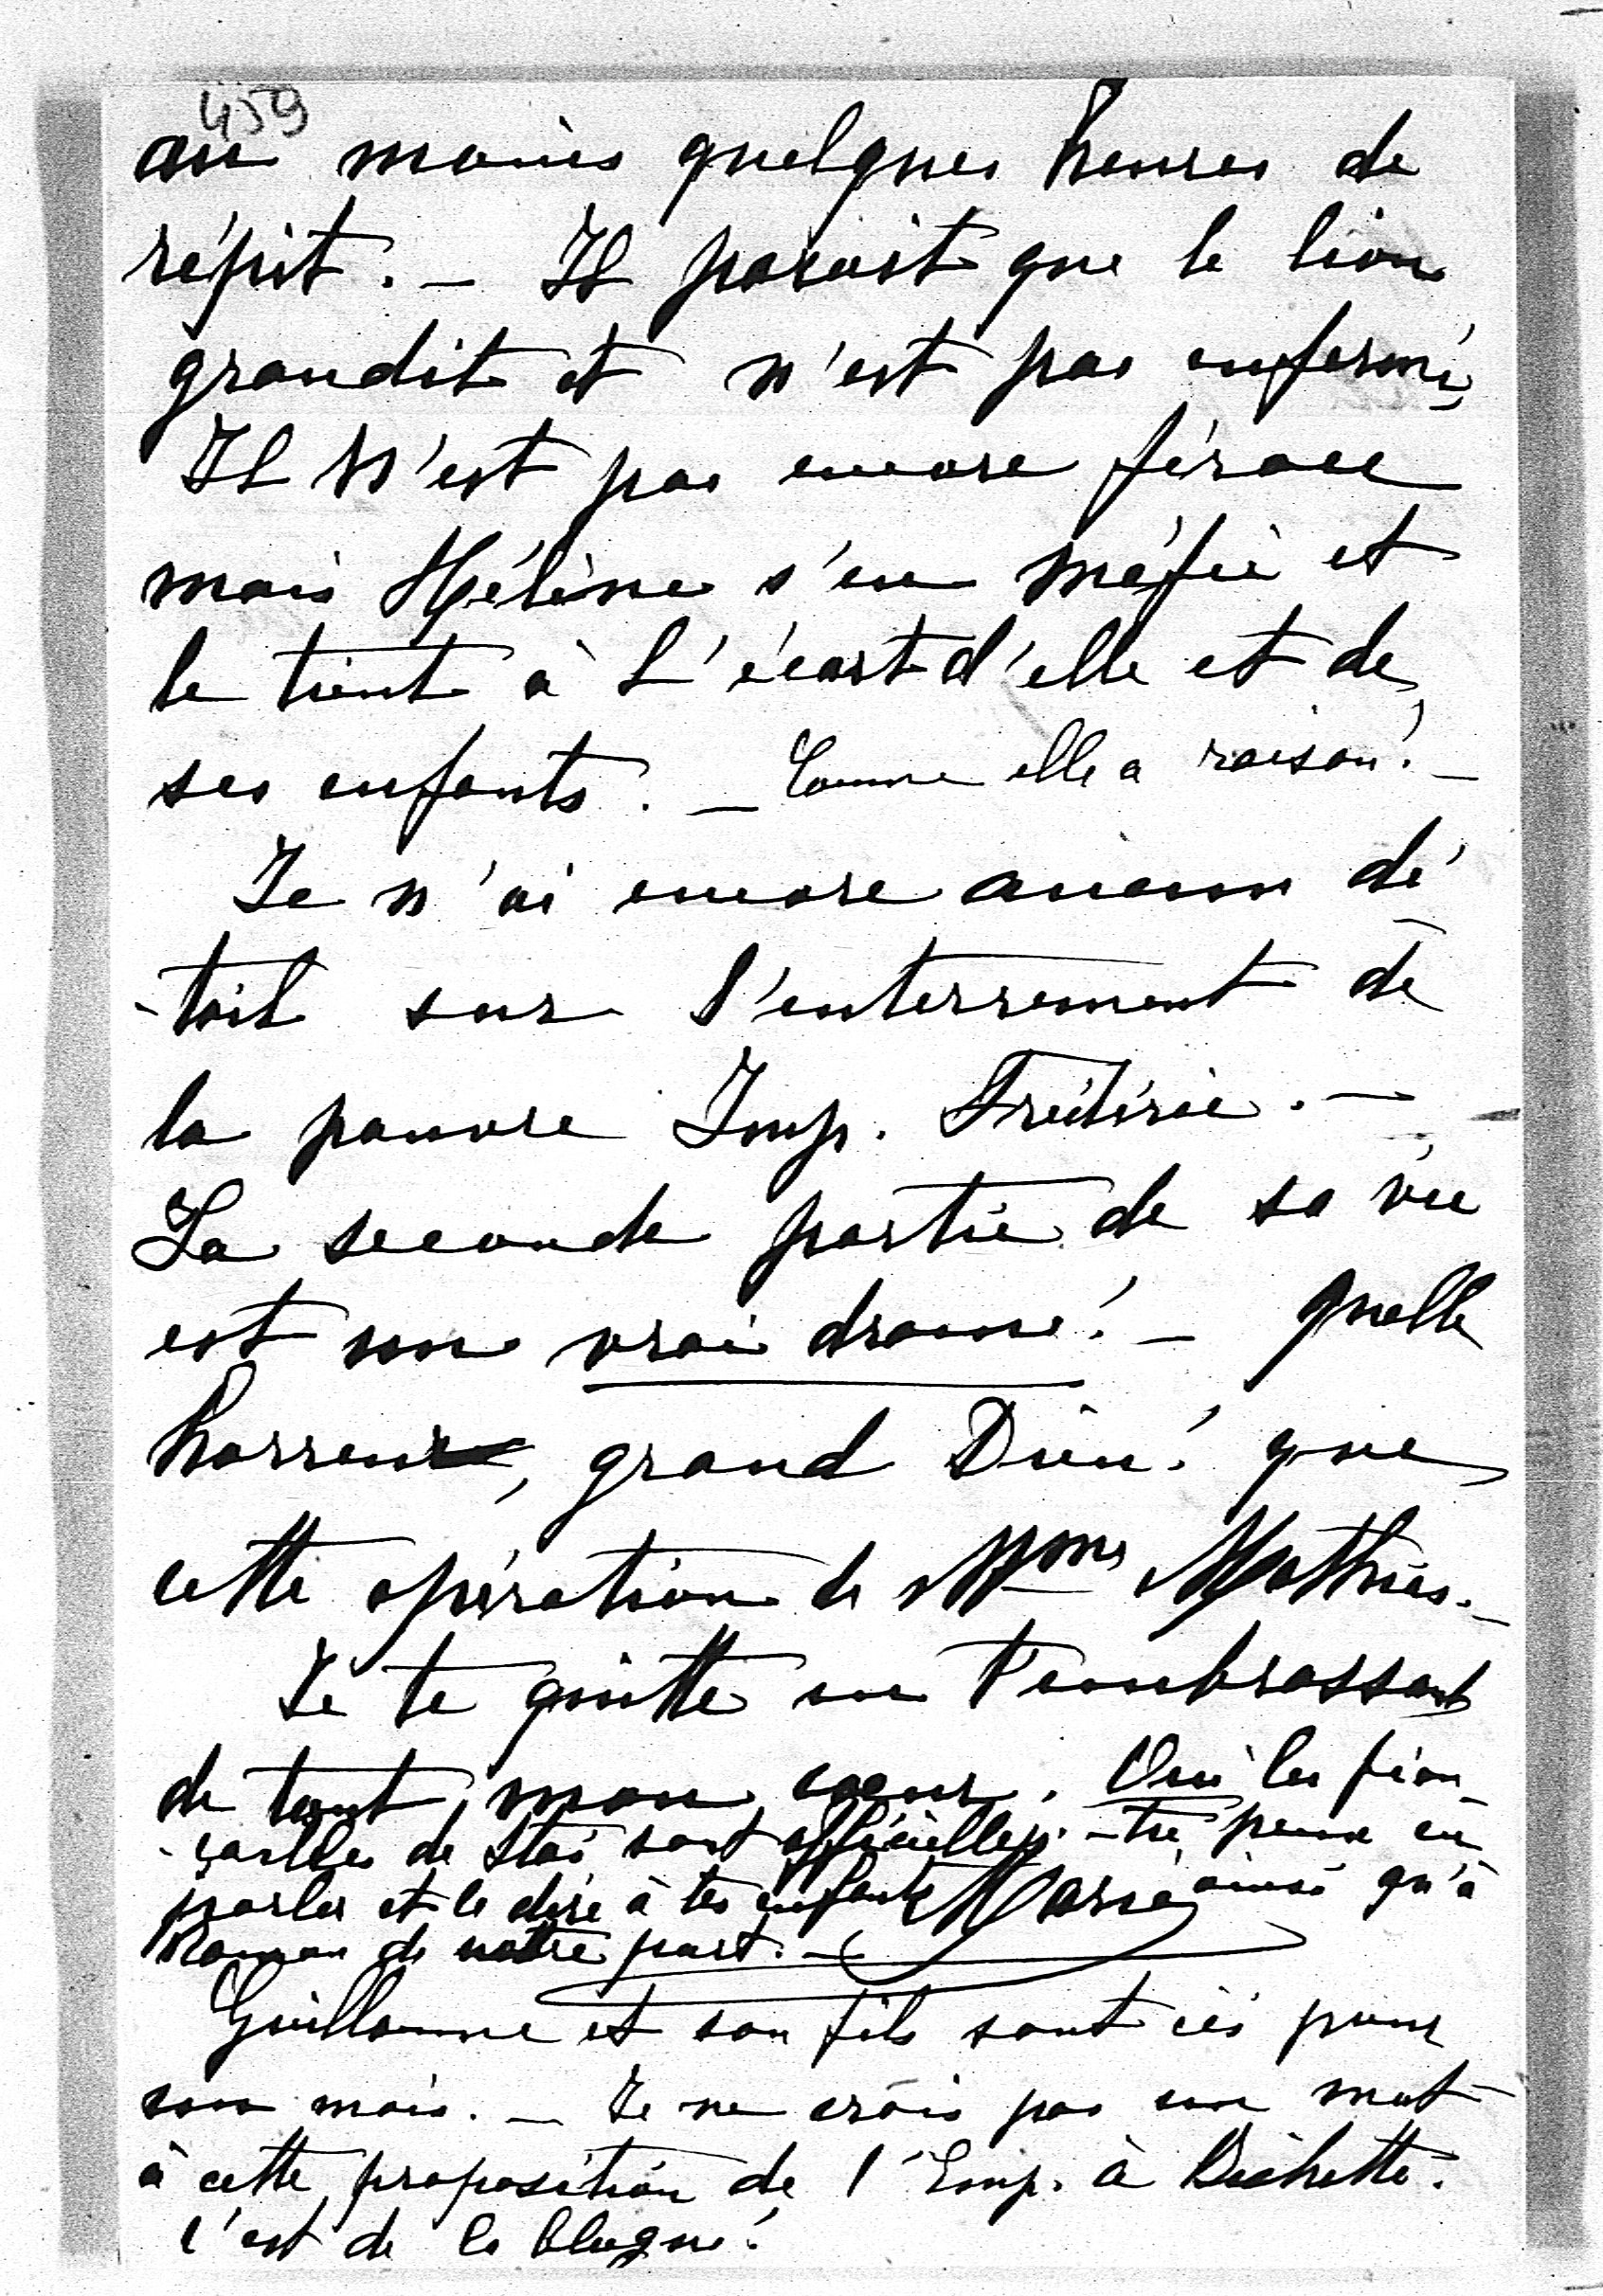 459
au moins quelques heures de
répit. — Il parait que le lion
grandit et n'est pas enfermé,
Il n'est pas encore féroce
mais Hélène s'en méfie et
le tient à l'écart d'elle et de
ses enfants. — Comme elle a raison! —
Je n'ai encore aucun dé
-tail sur l'enterrement de
la pauvre Imp. Frédéric. —
La seconde partie de sa vie
est un vrai drame! — Quelle
horreur, grand Dieu! que
cette opération de Mme Mathias. —
Je te quitte en t'embrassant
de tout mon coeur. Oui les fian
-çailles de Stas sont officielles. — tu peux en
parler et le dire à tes enfants ainsi qu'à
Roman de notre part. —
Marie
Guillaume et son fils sont ici pour
un mois. — Je ne crois pas un mot
à cette proposition de l'Emp. à Bichette.
c'est de la blague!